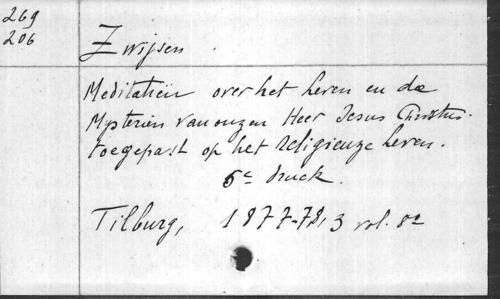 269
206
Zwijsen.
Meditatiën over het leven en de
Mysterien van onzen Heer Jesus Christus
toegepast op het religieuze leven.
5e druk.
Tilburg, 1877-78, 3 vol. 8o